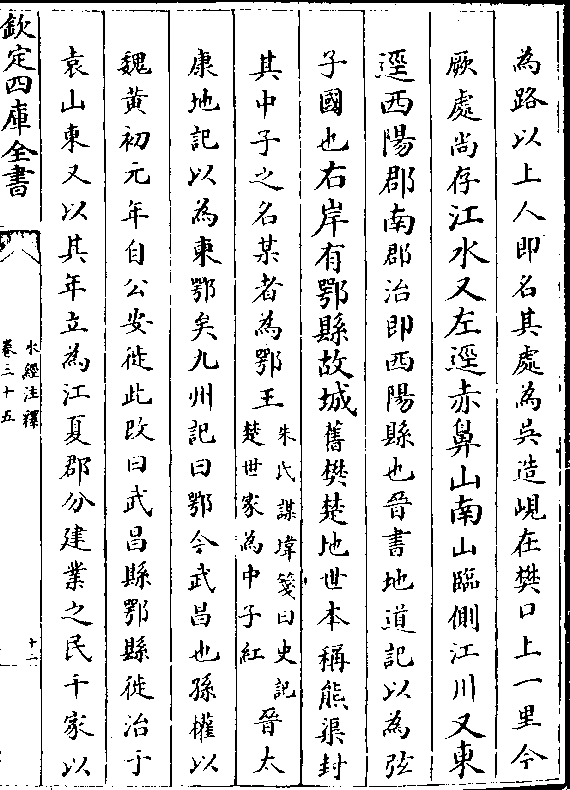 為路以上人即名其處為吳造峴在樊口上一里今
厥處尚存江水又左逕赤鼻山南山臨側江川又東
逕西陽郡南郡治即西陽縣也晉書地道記以為弦
子國也右岸有鄂縣故城舊樊楚地世本稱熊渠封
其中子之名某者為鄂王朱氏謀㙔箋曰史記楚世家為中子紅晉太
康地記以為東鄂矣九州記曰鄂今武昌也孫權以
魏黃初元年自公安徙此改曰武昌縣鄂縣徙治于
袁山東又以其年立為江夏郡分建業之民千家以
欽定四庫全書
水經注釋
卷三十五
十二